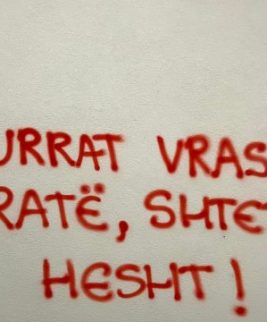 URRAT VRAS
RATË, SHTET
HESHT!